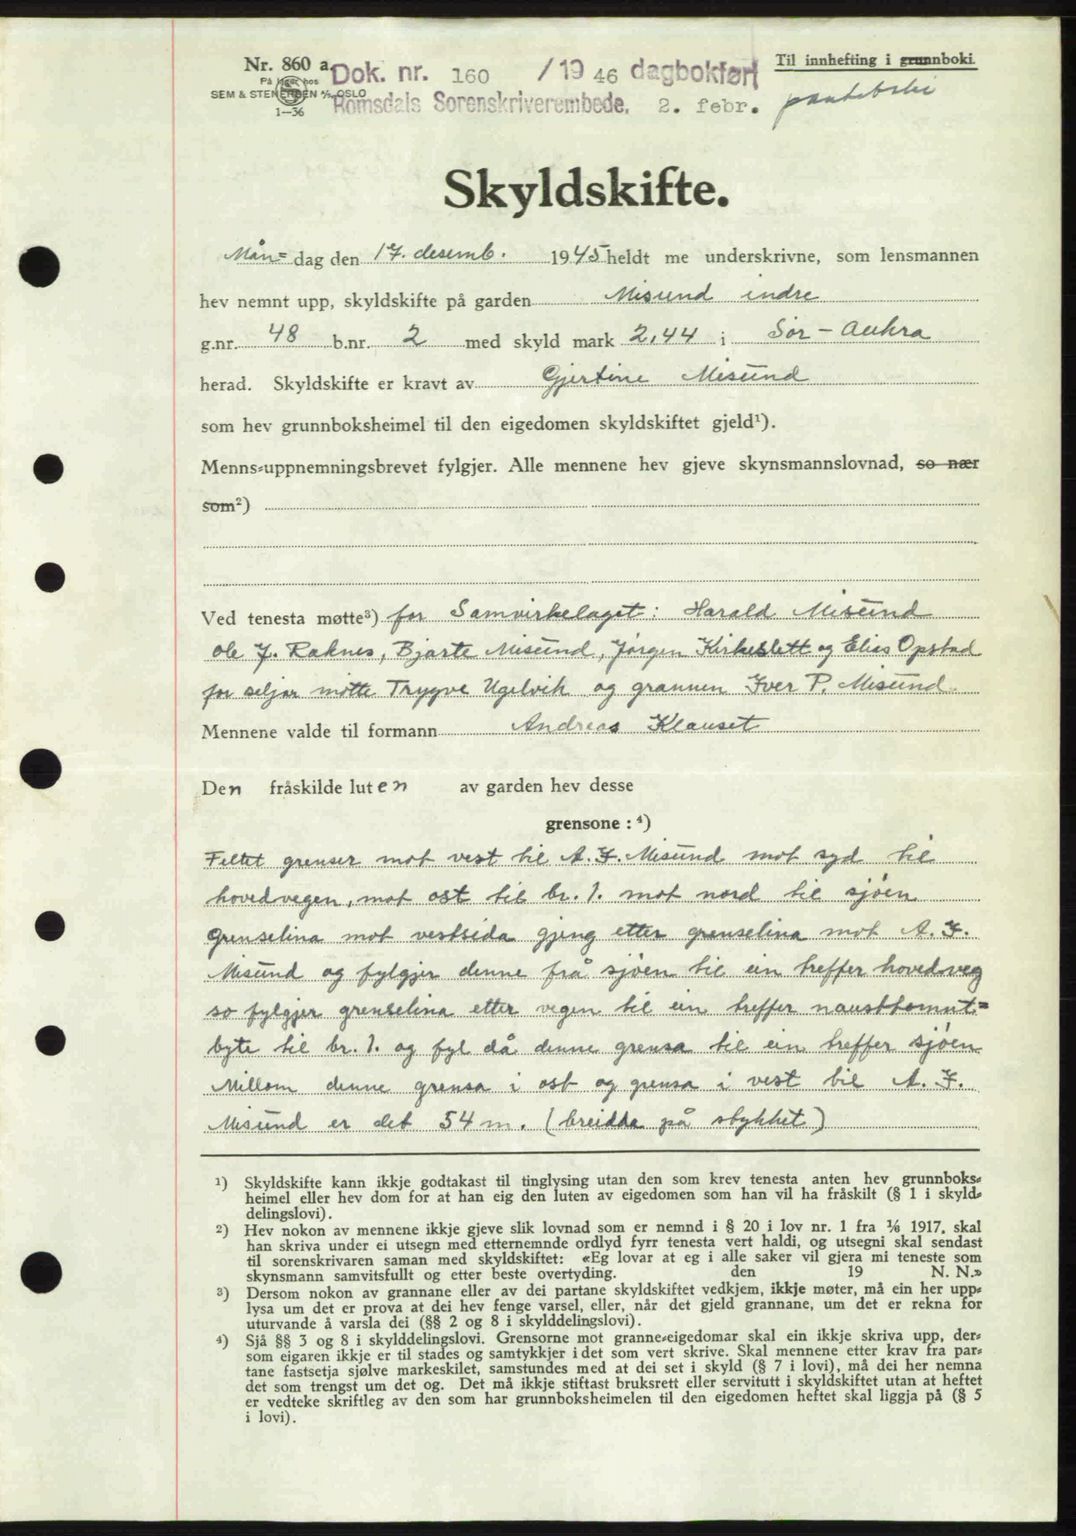 Nr. 860 a.
På lager hos
SEM & STENERSEN A/S, OSLO
1—36
Dok. nr. 160 /19 46 dagbokført
Romsdals Sorenskriverembede, 2. febr.
Til innhefting i grunnboki.
pantebok
Skyldskifte.
Mån= dag den 17. desemb. 1945 heldt me underskrivne, som lensmannen
hev nemnt upp, skyldskifte på garden Misund indre
g.nr. 48 b.nr. 2 med skyld mark 2,44 i Sør-Aukra
herad. Skyldskifte er kravt av Gjertine Misund
som hev grunnboksheimel til den eigedomen skyldskiftet gjeld¹).
Menns-uppnemningsbrevet fylgjer. Alle mennene hev gjeve skynsmannslovnad, so nær
som²)
Ved tenesta møtte³) for Samvirkelaget: Harald Misund
Ole J. Raknes, Bjarte Misund, Jørgen Kirkeslett og Elias Opstad
for seljar møtte Trygve Ugelvik og grannen Iver P. Misund.
Mennene valde til formann Andreas Klauset
Den fråskilde luten av garden hev desse
grensone : ⁴)
Feltet grenser mot vest til A. J. Misund mot syd til
hovedvegen, mot ost til br. 1. mot nord til sjøen
Grenselina mot vestsida gjeng etter grenselina mot A. J.
Misund og fylgjer denne frå sjøen til ein treffer hovedveg
so fylgjer grenselina etter vegen til ein treffer nausttomt=
byte til br. 1. og fyl då denne grensa til ein treffer sjøen
Millom denne grensa i ost og grensa i vest til A. J.
Misund er det 54 m. (breidda på stykket)
¹) Skyldskifte kann ikkje godtakast til tinglysing utan den som krev tenesta anten hev grunnboks-
heimel eller hev dom for at han eig den luten av eigedomen som han vil ha fråskilt (§ 1 i skyld-
delingslovi).
²) Hev nokon av mennene ikkje gjeve slik lovnad som er nemnd i § 20 i lov nr. 1 fra 1/6 1917, skal
han skriva under ei utsegn med etternemnde ordlyd fyrr tenesta vert haldi, og utsegni skal sendast
til sorenskrivaren saman med skyldskiftet: «Eg lovar at eg i alle saker vil gjera mi teneste som
skynsmann samvitsfullt og etter beste overtyding. den 19 N. N.»
³) Dersom nokon av grannane eller av dei partane skyldskiftet vedkjem, ikkje møter, må ein her upp-
lysa um det er prova at dei hev fenge varsel, eller, når det gjeld grannane, um det er rekna for
uturvande å varsla dei (§§ 2 og 8 i skylddelingslovi).
⁴) Sjå §§ 3 og 8 i skylddelingslovi. Grensorne mot granne-eigedomar skal ein ikkje skriva upp, der-
som eigaren ikkje er til stades og samtykkjer i det som vert skrive. Skal mennene etter krav fra par-
tane fastsetja sjølve markeskilet, samstundes med at dei set i skyld (§ 7 i lovi), må dei her nemna
det som trengst um det og. Det må ikkje stiftast bruksrett eller servitutt i skyldskiftet utan at heftet
er vedteke skriftleg av den som har grunnboksheimelen til den eigedomen heftet skal liggja på (§ 5
i lovi).